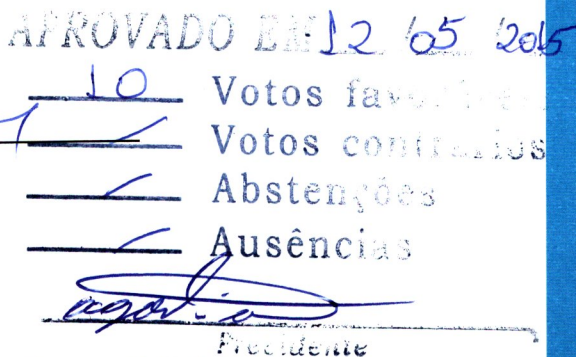 APROVADO EM 12 05 2015
10 Votos favoráveis
/ Votos contrários
/ Abstenções
/ Ausências
Presidente